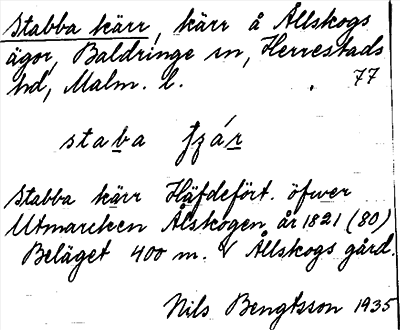 Stabba kärr, kärr å Ållskogs
ägor, Baldringe sn, Herrestads
hd, Malm. l. 77
staba
Stabba kärr Häfdefört. öfwer
Utmarcken Ålskogen år 1821 (80)
Beläget 400 m. V Ållskogs gård.
Nils Bengtsson 1935